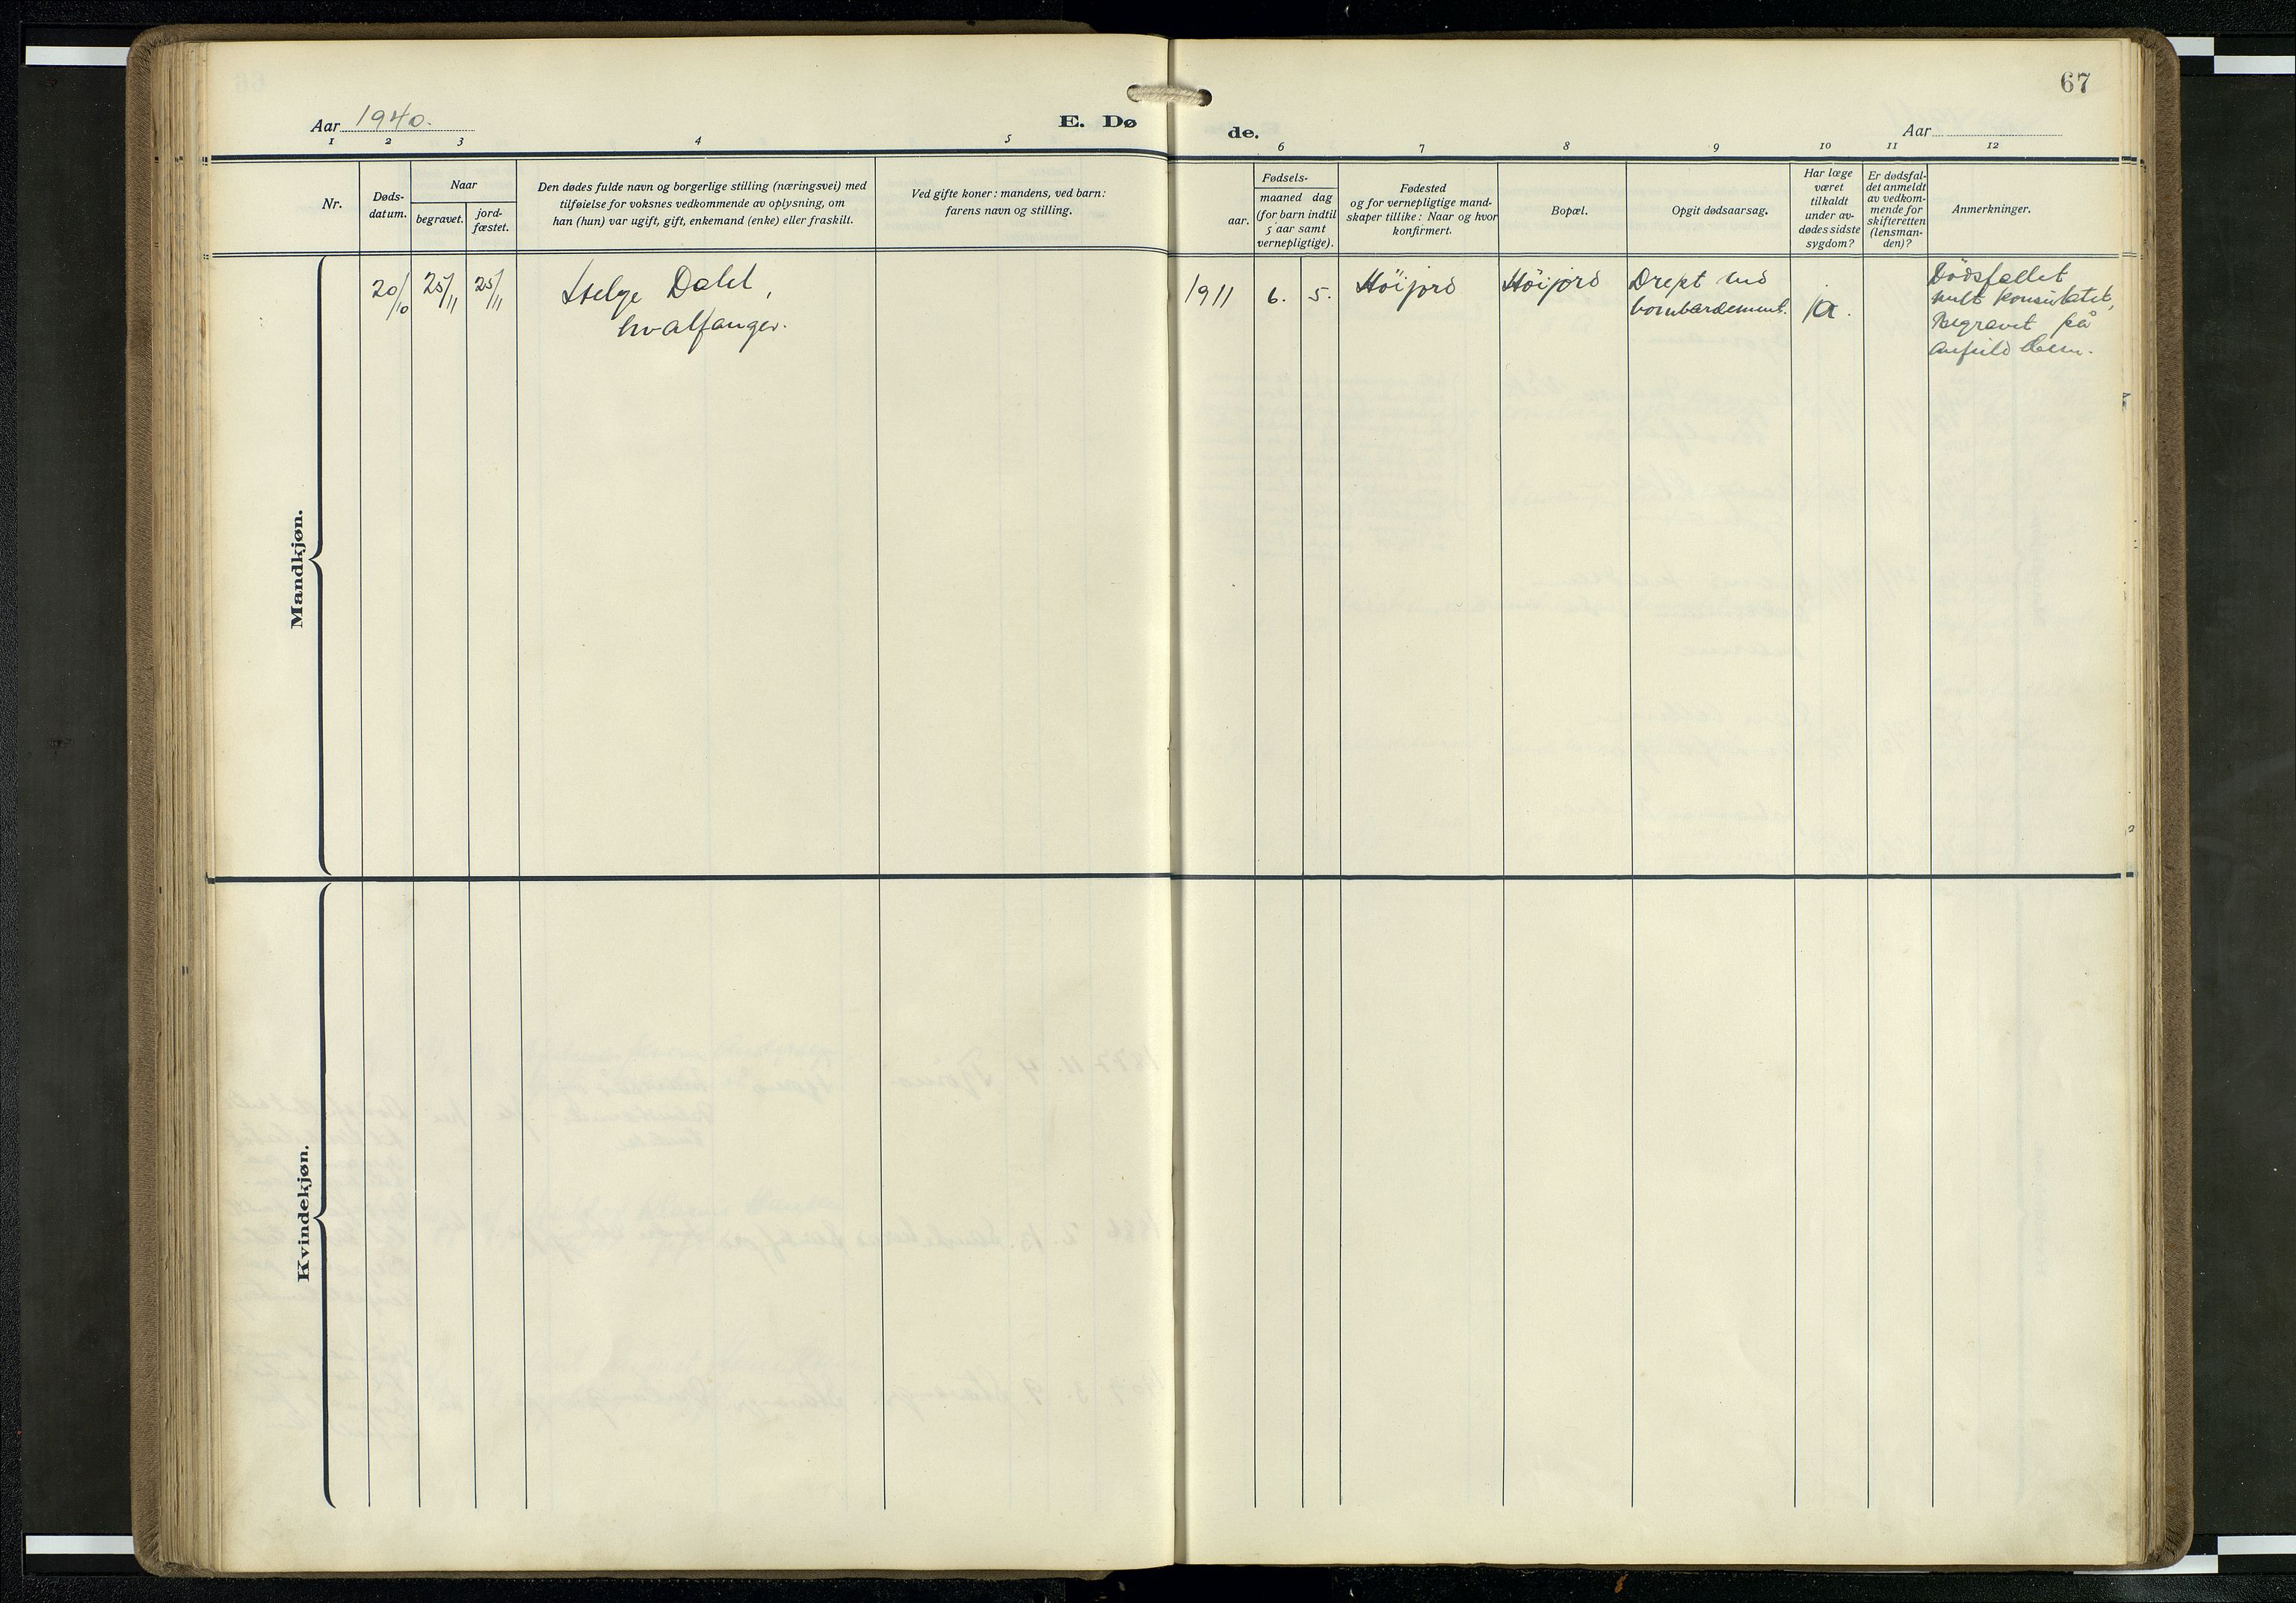 67
Aar 1940.
E. Dø
de.
Aar
1 2 3 4 5 6 7 8 9 10 11 12
Nr.
Døds-
datum.
Naar
begravet.
jord-
fæstet.
Den dødes fulde navn og borgerlige stilling (næringsvei) med
tilføielse for voksnes vedkommende av oplysning, om
han (hun) var ugift, gift, enkemand (enke) eller fraskilt.
Ved gifte koner: mandens, ved barn:
farens navn og stilling.
Fødsels-
aar.
maaned dag
(for barn indtil
5 aar samt
vernepligtige).
Fødested
og for vernepligtige mand-
skaper tillike: Naar og hvor
konfirmert.
Bopæl.
Opgit dødsaarsag.
Har læge
været
tilkaldt
under av-
dødes sidste
sygdom?
Er dødsfal-
det anmeldt
av vedkom-
mende for
skifteretten
(lensman-
den)?
Anmerkninger.
Mandkjøn.
20/10
25/11
25/11
Helge Dahl,
hvalfanger.
1911
6.
5.
Höijord
Höijord
Drept ved
bombardement.
ja.
Dödsfallet
melt konsulatet,
Begravet på
Anfield Cem.
Kvindekjøn.